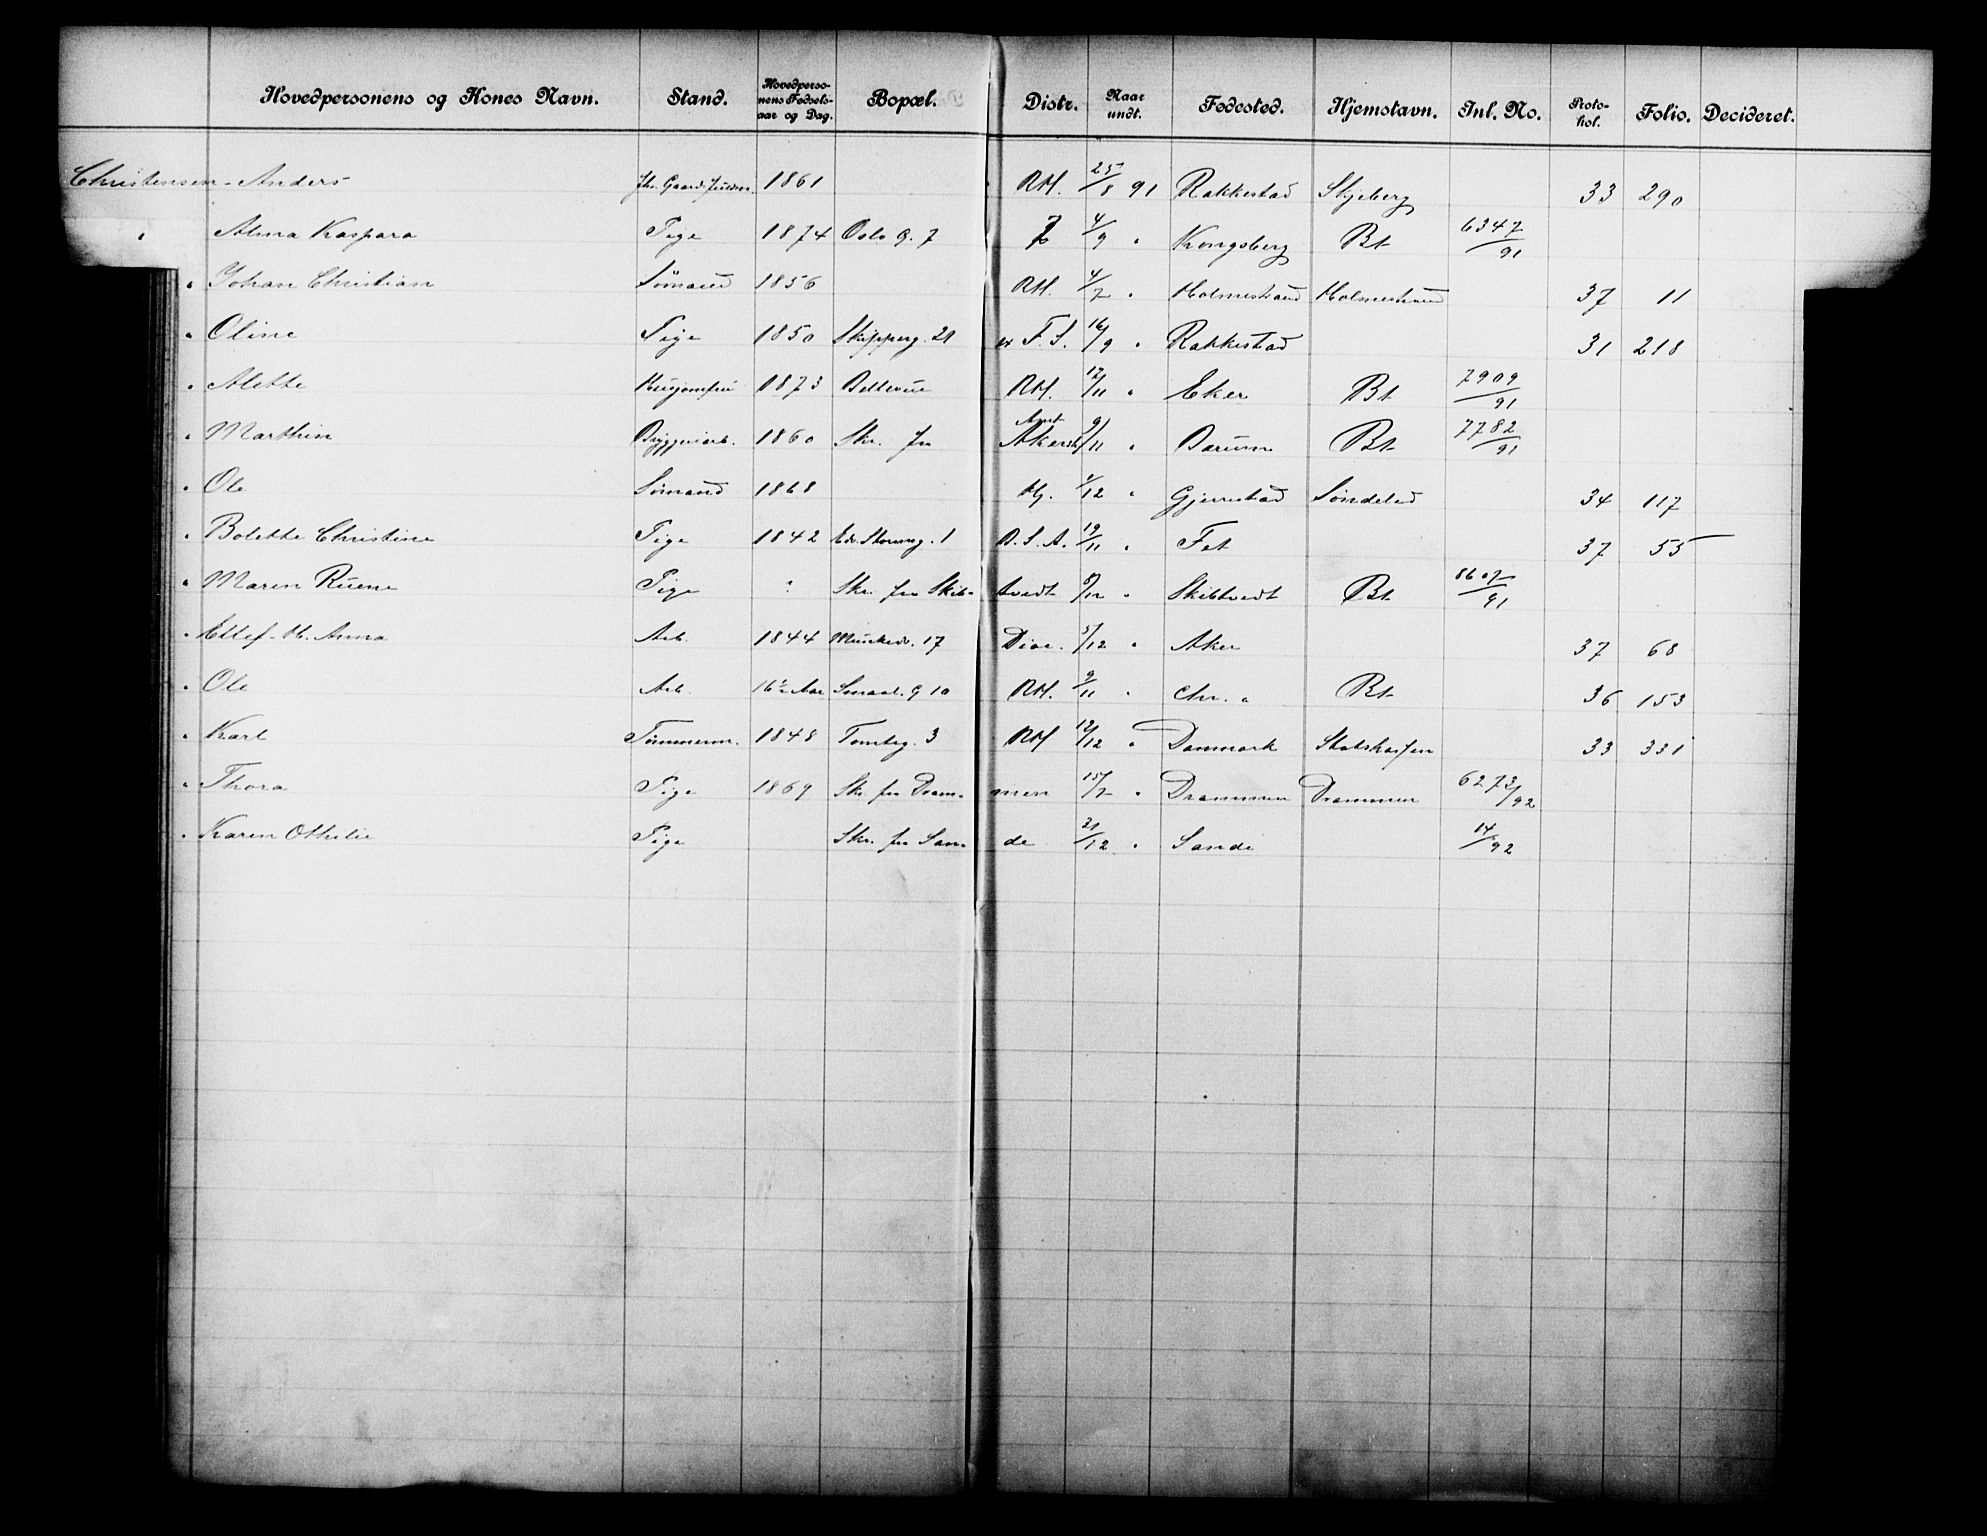 Hovedpersonens og Kones Navn. Stand. Hovedperso-nens Fødsels-aar og Dag. Bopæl. Distr. Naar undt. Fødested. Hjemstavn. Inl. No. Proto-kol. Folio. Decideret.
Christensen Anders 1861 RH. 25/8 91 Rakkestad Skjeberg 33 290
" Alma Kaspara Pige 1874 Oslo g. 7 4/9 " Kongsberg Bt 6347/91
" Johan Christian Sømand 1856 RH. 4/7 " Holmestrand Holmestrand 37 11
" Oline Pige 1850 Skipperg. 21 F. S. 16/9 " Rakkestad 31 218
" Alette Husjomfru 1873 Bellevue RH. 12/11 " Eker Bt 7909/91
" Marthin Bryggeriarb. 1860 Skr. fra Amt Akersh 9/11 " Bærum Bt 7782/91
" Ole Sømand 1868 1/12 " Gjerrestad Søndeled 34 117
" Bolette Christine Pige 1842 Edv. Stormsg. 1 D. S. A. 19/11 " Fet 37 55
" Maren Ruene Pige " Skr. fra Skib- tvedt 8/12 " Skibtvedt Bt 8607/91
" Ellef - H. Anna Arb. 1844 Munkedv. 17 Diac. 5/12 " Aker 37 68
" Ole Arb. 16 1/2 Aar Smaal. g 10 RH. 9/11 " Chr. a Bt 36 153
" Karl Tømmerm. 1848 Tomteg. 3 RH 12/12 " Danmark Statskassen 33 331
" Thora Pige 1869 Skr. fra Dram- men 15/7 " Drammen Drammen 6273/92
" Karen Othilie Pige Skr. fra San- de 21/12 " Sande 14/92